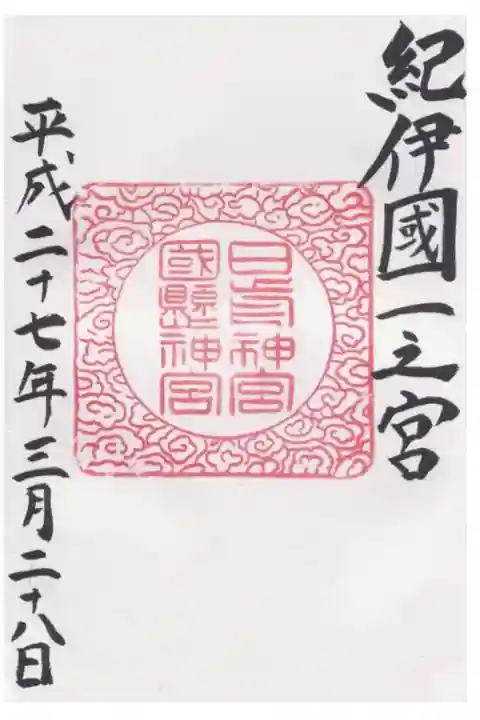 紀伊國一之宮
日前神宮
國懸神宮
平成二十七年三月二十八日